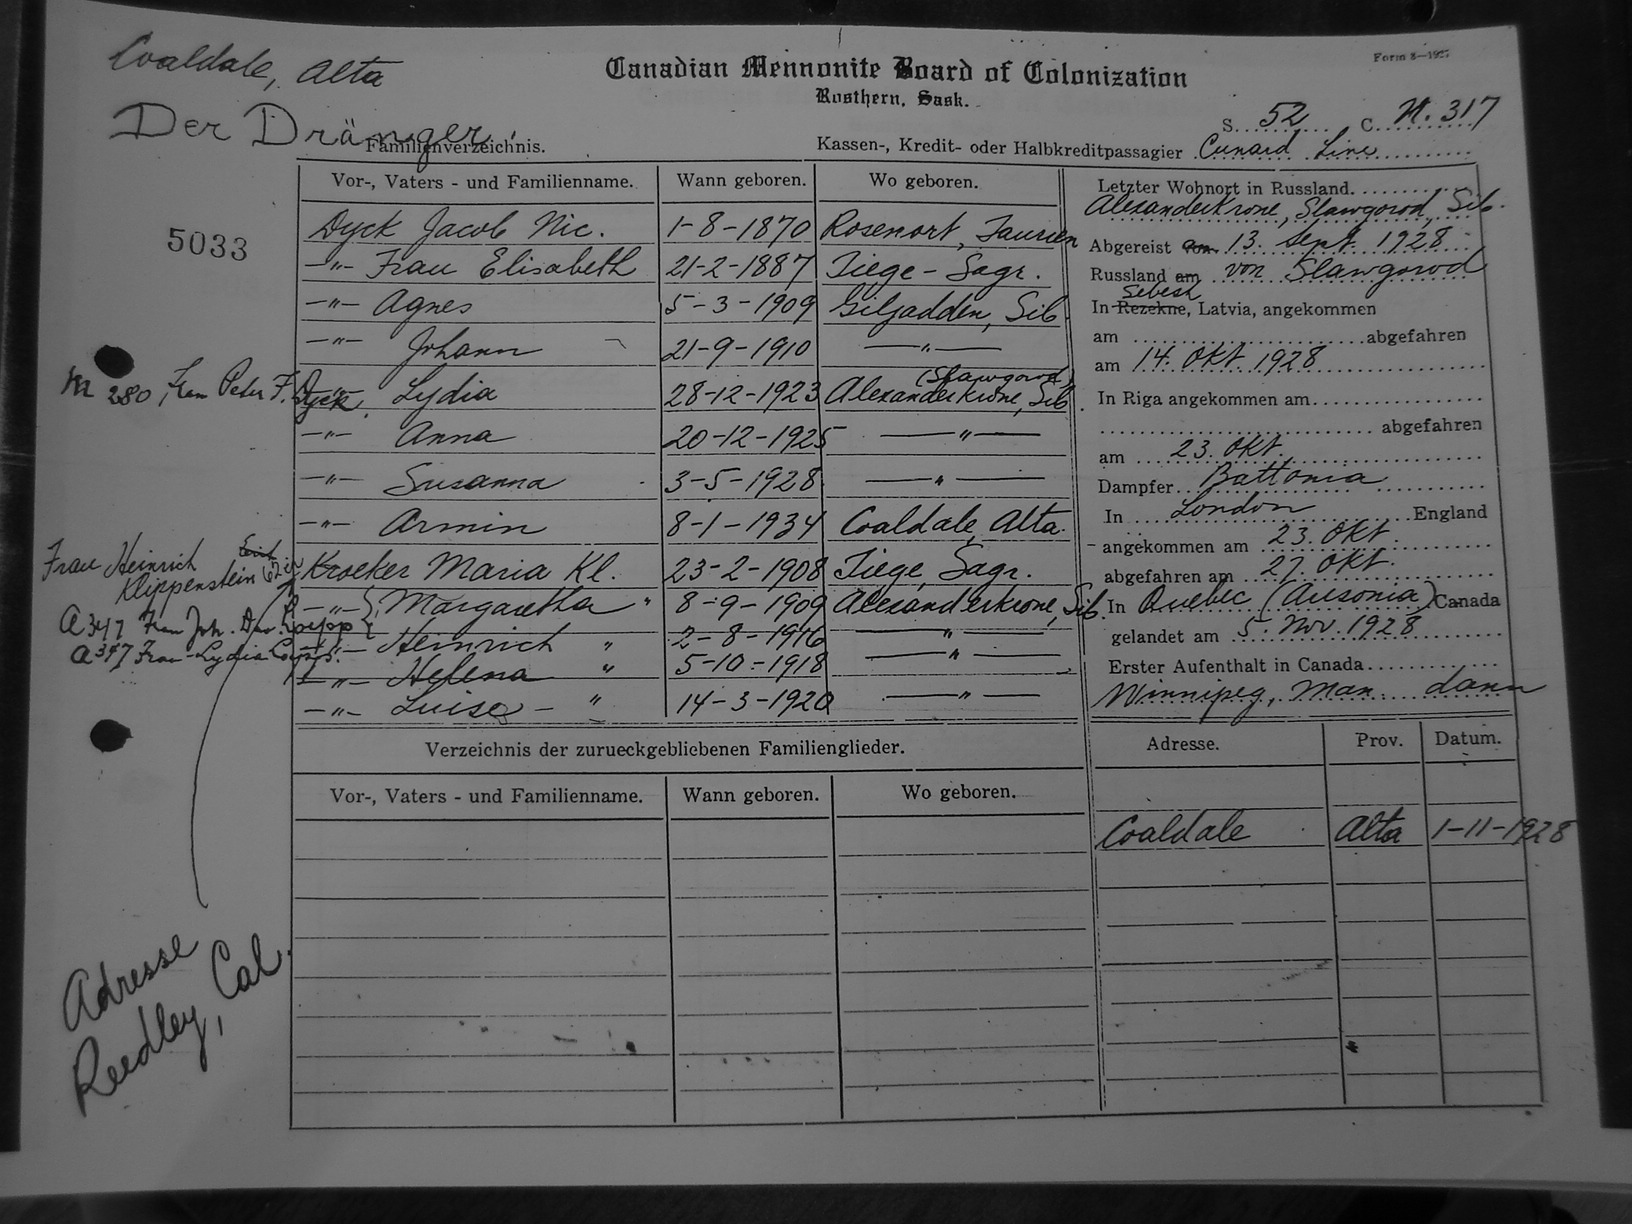 Coaldale, Alta
Canadian Mennonite Board of Colonization
Form 8—1927
Rosthern, Sask.
Der Dränger.
S. 52 C. N. 317
Familienverzeichnis.
Kassen-, Kredit- oder Halbkreditpassagier Cunard Line
5033
Vor-, Vaters - und Familienname. Wann geboren. Wo geboren.
Dyck Jacob Nic. 1-8-1870 Rosenort, Taurien
-"- Frau Elisabeth 21-2-1887 Tiege-Sagr.
-"- Agnes 5-3-1909 Giljadden, Sib.
-"- Johann 21-9-1910 -"-
m 280, Frau Peter F. Dyck.
-"- Lydia 28-12-1923 Alexanderkrone, Sib. (Slawgorod)
-"- Anna 20-12-1925 -"-
-"- Susanna 3-5-1928 -"-
-"- Armin 8-1-1934 Coaldale, Alta.
Frau Heinrich
Klippenstein
Kroeker Maria Kl. 23-2-1908 Tiege, Sagr.
A 347 Frau Joh. Dav.
-"- Margaretha " 8-9-1909 Alexanderkrone, Sib.
-"- Heinrich " 2-8-1916 -"-
A 347 Frau Lydia
-"- Helena " 5-10-1918 -"-
-"- Luise - " 14-3-1920 -"-
Letzter Wohnort in Russland.
Alexanderkrone, Slawgorod, Sib.
Abgereist am 13. Sept. 1928
Russland am von Slawgorod
Sebesh
In Rezekne, Latvia, angekommen
am abgefahren
am 14. Okt. 1928
In Riga angekommen am
abgefahren
am 23. Okt.
Dampfer Battonia
In London England
angekommen am 23. Okt.
abgefahren am 27. Okt.
In Quebec (Ausonia) Canada
gelandet am 5. Nov. 1928
Erster Aufenthalt in Canada
Winnipeg, Man. dann
Verzeichnis der zurueckgebliebenen Familienglieder.
Vor-, Vaters - und Familienname. Wann geboren. Wo geboren.
Adresse. Prov. Datum.
Coaldale Alta 1-11-1928
Adresse
Reedley, Cal.